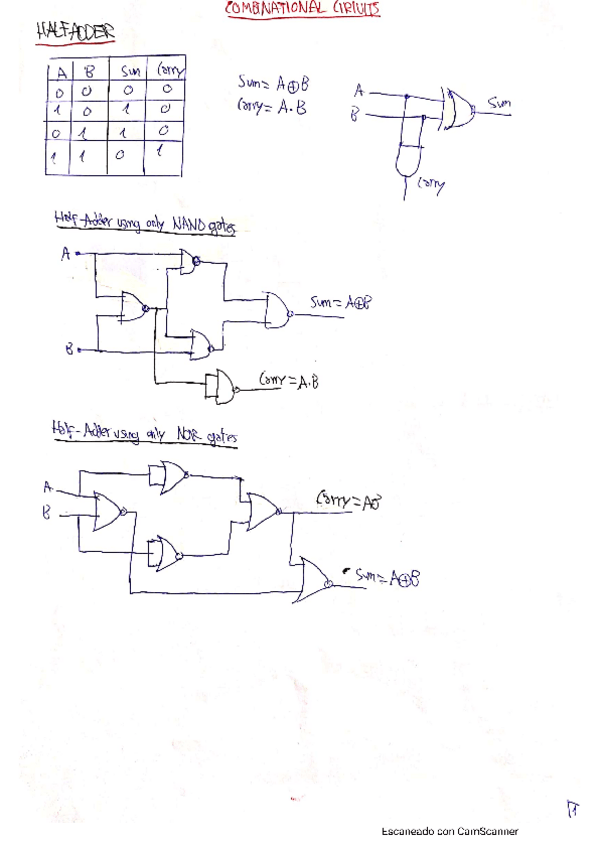 COMBINATIONAL CIRCUITS
HALF ADDER
A B Sum Carry
0 0 0 0
1 0 1 0
0 1 1 0
1 1 0 1
Sum = A⊕B
Carry = A.B
A
B
Sum
Carry
Half-Adder using only NAND gates
A
B
Sum = A⊕B
Carry = A.B
Half-Adder using only NOR gates
A
B
Carry = AB
Sum = A⊕B
Escaneado con CamScanner